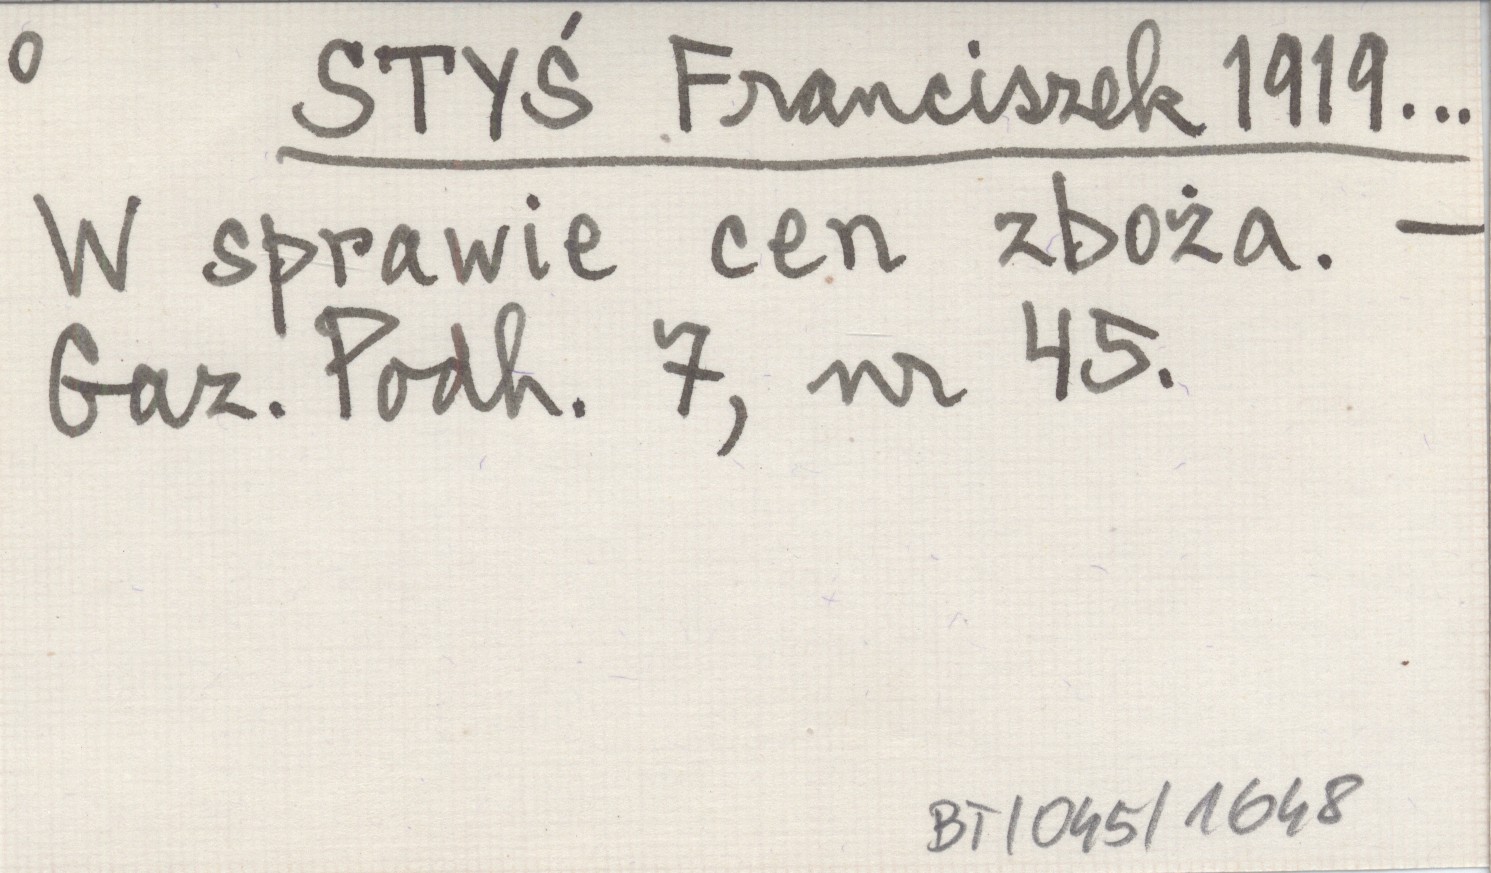 o STYŚ Franciszek 1919...
W sprawie cen zboża. —
Gaz. Podh. 7, nr 45.
BT/045/1648